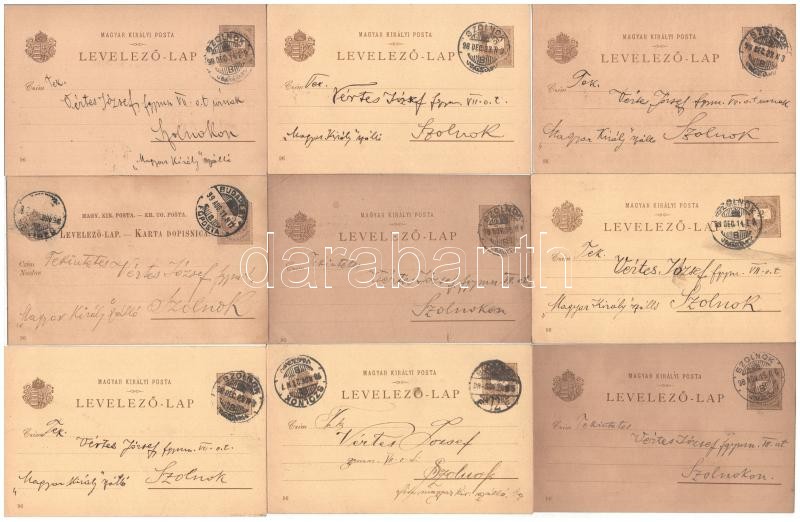 MAGYAR KIRÁLYI POSTA
LEVELEZŐ-LAP
SZOLNOK
98 DEC. 14
Czím
Tek.
Vértes József gymn. VII. o.t. úrnak
Szolnokon
„Magyar Király" szálló
96
MAGYAR KIRÁLYI POSTA
LEVELEZŐ-LAP
SZOLNOK
Czím
Vértes József gymn. VII. o.t.
„Magyar Király" szálló
Szolnok
96
MAGYAR KIRÁLYI POSTA
LEVELEZŐ-LAP
SZOLNOK
Czím
Tek.
Vértes József gymn. VII. o.t. úrnak
„Magyar Király" szálló
Szolnok
96
MAGY. KIR. POSTA. — KR. UG. POŠTA.
LEVELEZŐ-LAP. — KARTA DOPISNICA
BUDAPEST
FŐPOSTA
Czím
Naslov
Tekintetes Vértes József
„Magyar Király" szálló
Szolnok
96
MAGYAR KIRÁLYI POSTA
LEVELEZŐ-LAP
SZOLNOK
Tekintetes
Vértes József gymn. VII. o.t.
Szolnokon
96
MAGYAR KIRÁLYI POSTA
LEVELEZŐ-LAP
SZOLNOK
98 DEC. 14
Czím
Tek.
Vértes József gymn. VII. o.t.
„Magyar Király" szálló
Szolnok
96
MAGYAR KIRÁLYI POSTA
LEVELEZŐ-LAP
SZOLNOK
Czím
Tek.
Vértes József gymn. VII. o.t.
„Magyar Király" szálló
Szolnok
96
MAGYAR KIRÁLYI POSTA
LEVELEZŐ-LAP
SZOLNOK
Czím
Vértes József
gymn. VII. o.t.
Szolnok
96
MAGYAR KIRÁLYI POSTA
LEVELEZŐ-LAP
SZOLNOK
Czím
Tekintetes
Vértes József gymn. VII. o.t.
Szolnokon.
96
darabanth